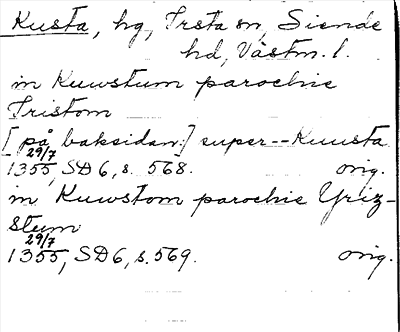 Kusta, hg, Irsta sn, Siende
hd, Västm. l.
in Kuwstum parochie
Iristom
[på baksidan:] super--Kuusta
29/7
1355, SD 6, s. 568. orig.
in Kuwstom parochie Yriz-
stum
29/7
1355, SD 6, s. 569. orig.